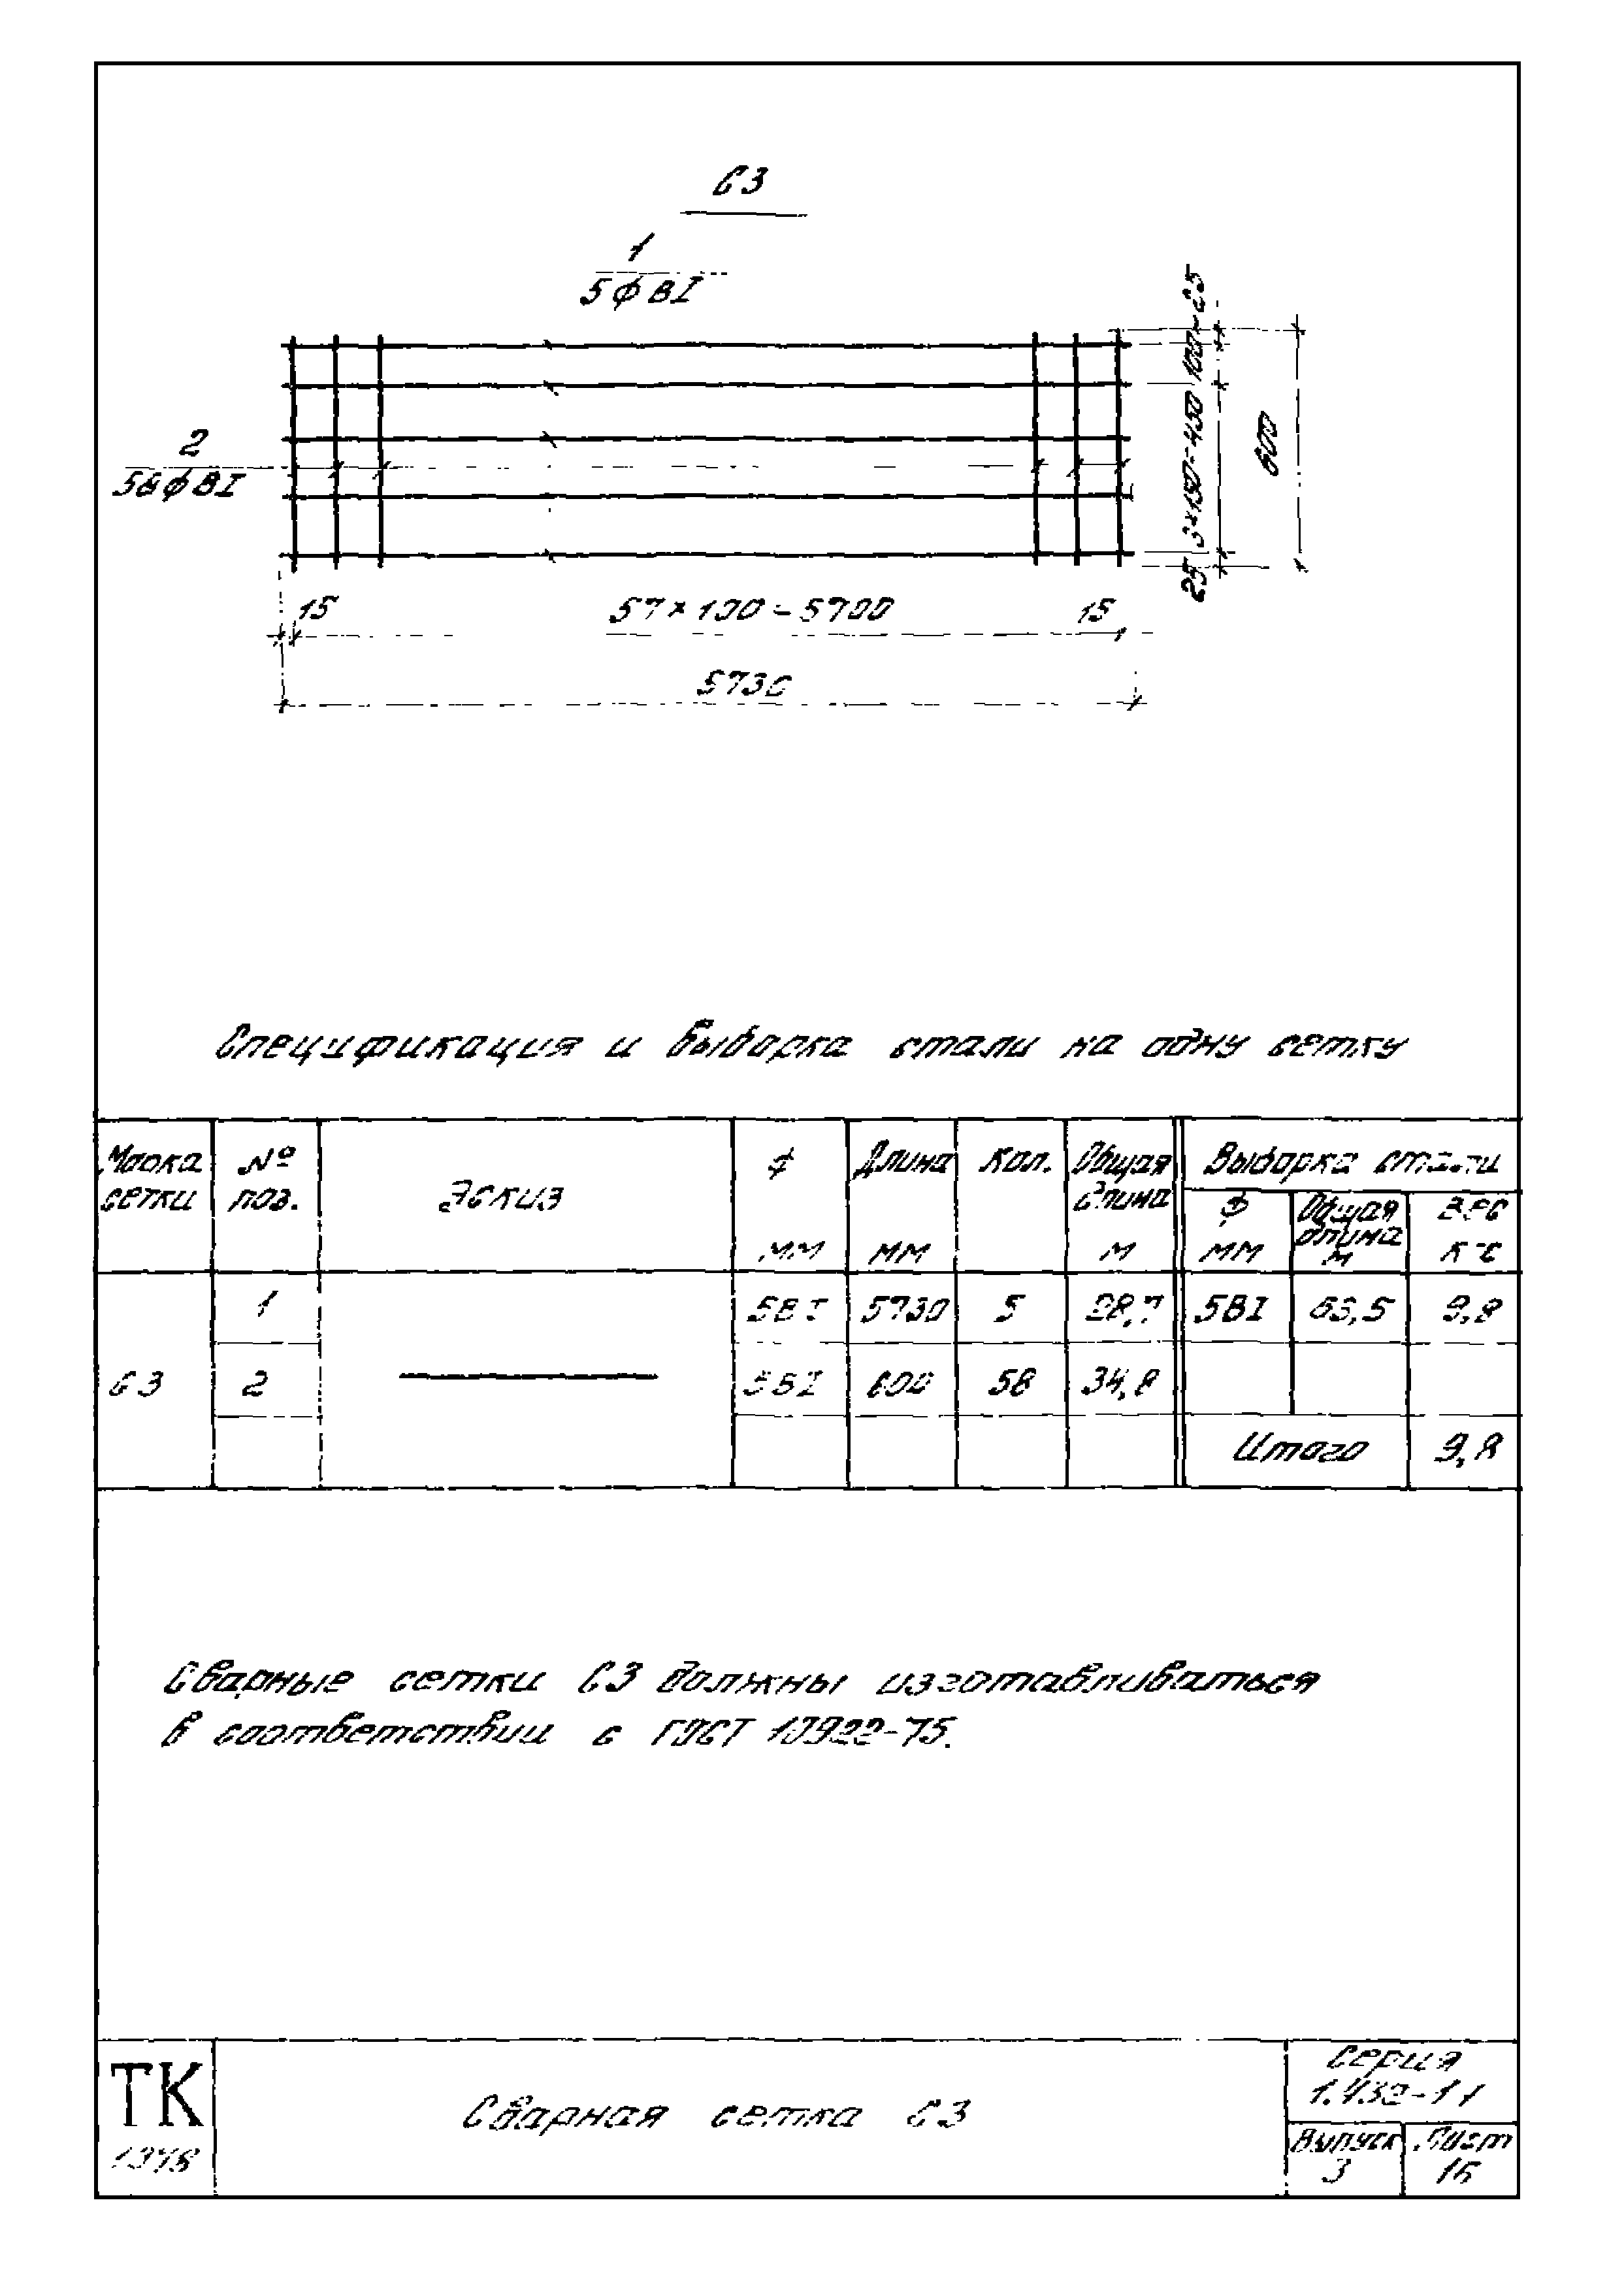 С3
1
5ф ВI
2
58ф ВI
25 3×150=450 100 25
600
15 57×100=5700 15
5730
Спецификация и выборка стали на одну сетку
Марка сетки № поз. Эскиз ф мм Длина мм Кол. Общая длина м Выборка стали
ф мм Общая длина м Вес кгс
1 5ВI 5730 5 28,7 5ВI 63,5 9,8
С3 2 5ВI 600 58 34,8
Итого 9,8
Сварные сетки С3 должны изготавливаться
в соответствии с ГОСТ 10922-75.
ТК
Сварная сетка С3
Серия
1.432-11
Выпуск Лист
3